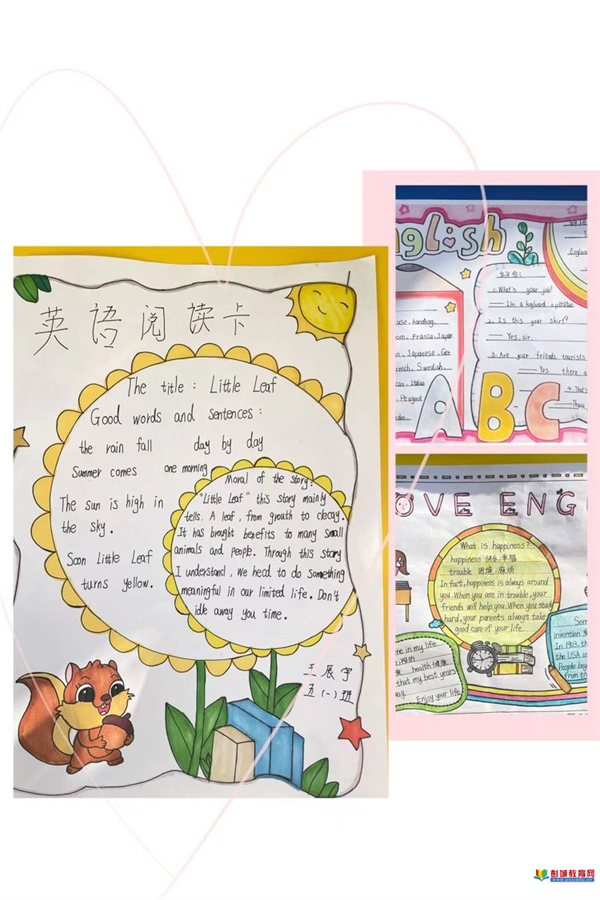 英语阅读卡
The title: Little Leaf
Good words and sentences:
the rain fall day by day
Summer comes one morning
The sun is high in
the sky.
Soon Little Leaf
turns yellow.
Moral of the story:
"Little Leaf" this story mainly
tells. A leaf, from growth to decay.
It has brought benefits to many small
animals and people. Through this story
I understand, we head to do something
meaningful in our limited life. Don't
idle away you time.
王辰宇
五(一)班
nglish
1. What's your job?
I'm a keyboard
2. Is this your shirt?
Yes, sir.
3. Are your friends tourists
Yes there a
use, handbag,
om, France, Japan
n, Japanese, Ger
rench, Swedish
Italian
Peugeot
ABC
OVE ENG
What is happiness?
happiness 快乐,幸福
trouble 困境,麻烦
In fact, happiness is always around
you. When you are in trouble, your
friends will help you. When you study
hard, your parents always take
good care of your life.
me in my life.
health 健康
that my best years
way.
Enjoy your life.
Som
invention
In 1903, th
the USA
People beg
from th
彭城教育网